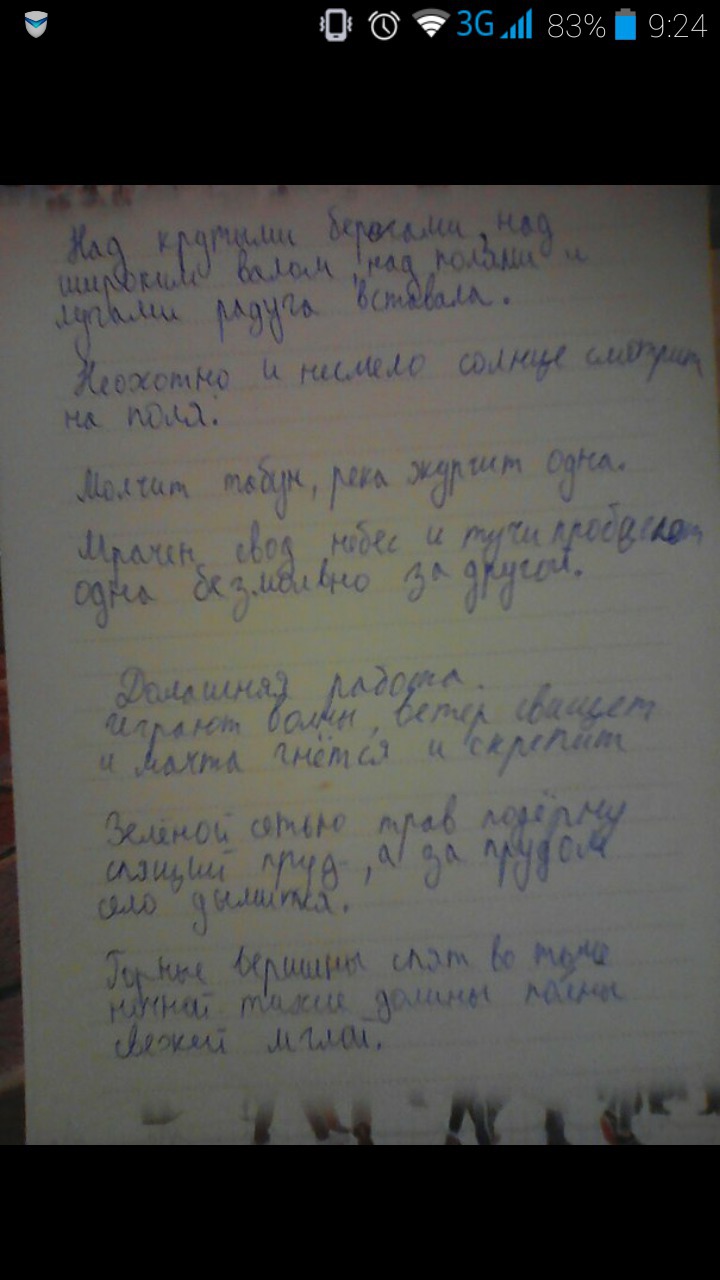 3G 83% 9:24
Над крутыми берегами, над
широким валом, над полями и
лугами радуга вставала.
Неохотно и несмело солнце смотрит
на поля.
Молчит табун, река журчит одна.
Мрачен свод небес и тучи пробегают
одна безмолвно за другой.
Домашняя работа.
играют волны, ветер свищет
и мачта гнётся и скрепит
Зелёной сетью трав подёрну
спящий пруд, а за прудом
село дымится.
Горные вершины спят во тьме
ночной тихие долины полны
свежей мглой.